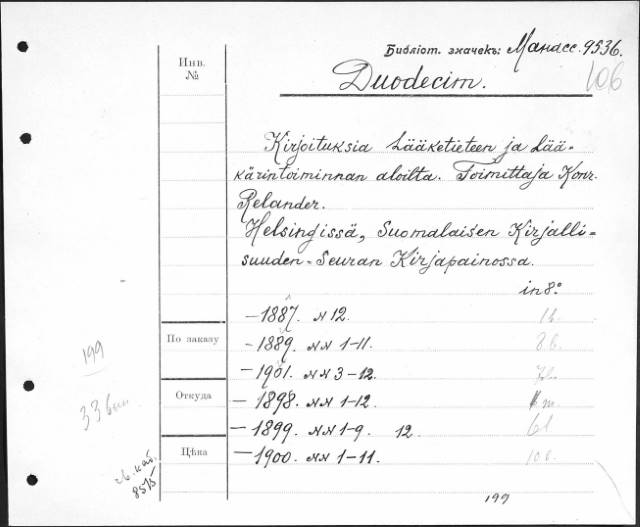 Библіот. значекъ: Манасс. 9536.
106
Инв.
№
Duodecim.
Kirjoituksia Lääketieteen ja Lää-
kärintoiminnan aloilta. Toimittaja Konr.
Relander.
Helsingissä, Suomalaisen Kirjalli-
suuden-Seuran Kirjapainossa.
in 8º
- 1887. N 12. 1 b.
По заказу
- 1889. NN 1-11. 8 b.
- 1901. NN 3-12.
199
Откуда
- 1898. NN 1-12.
33
- 1899. NN 1-9. 12. 6 b
Цѣна
- 1900. NN 1-11. 10 b.
каб.
8575
199